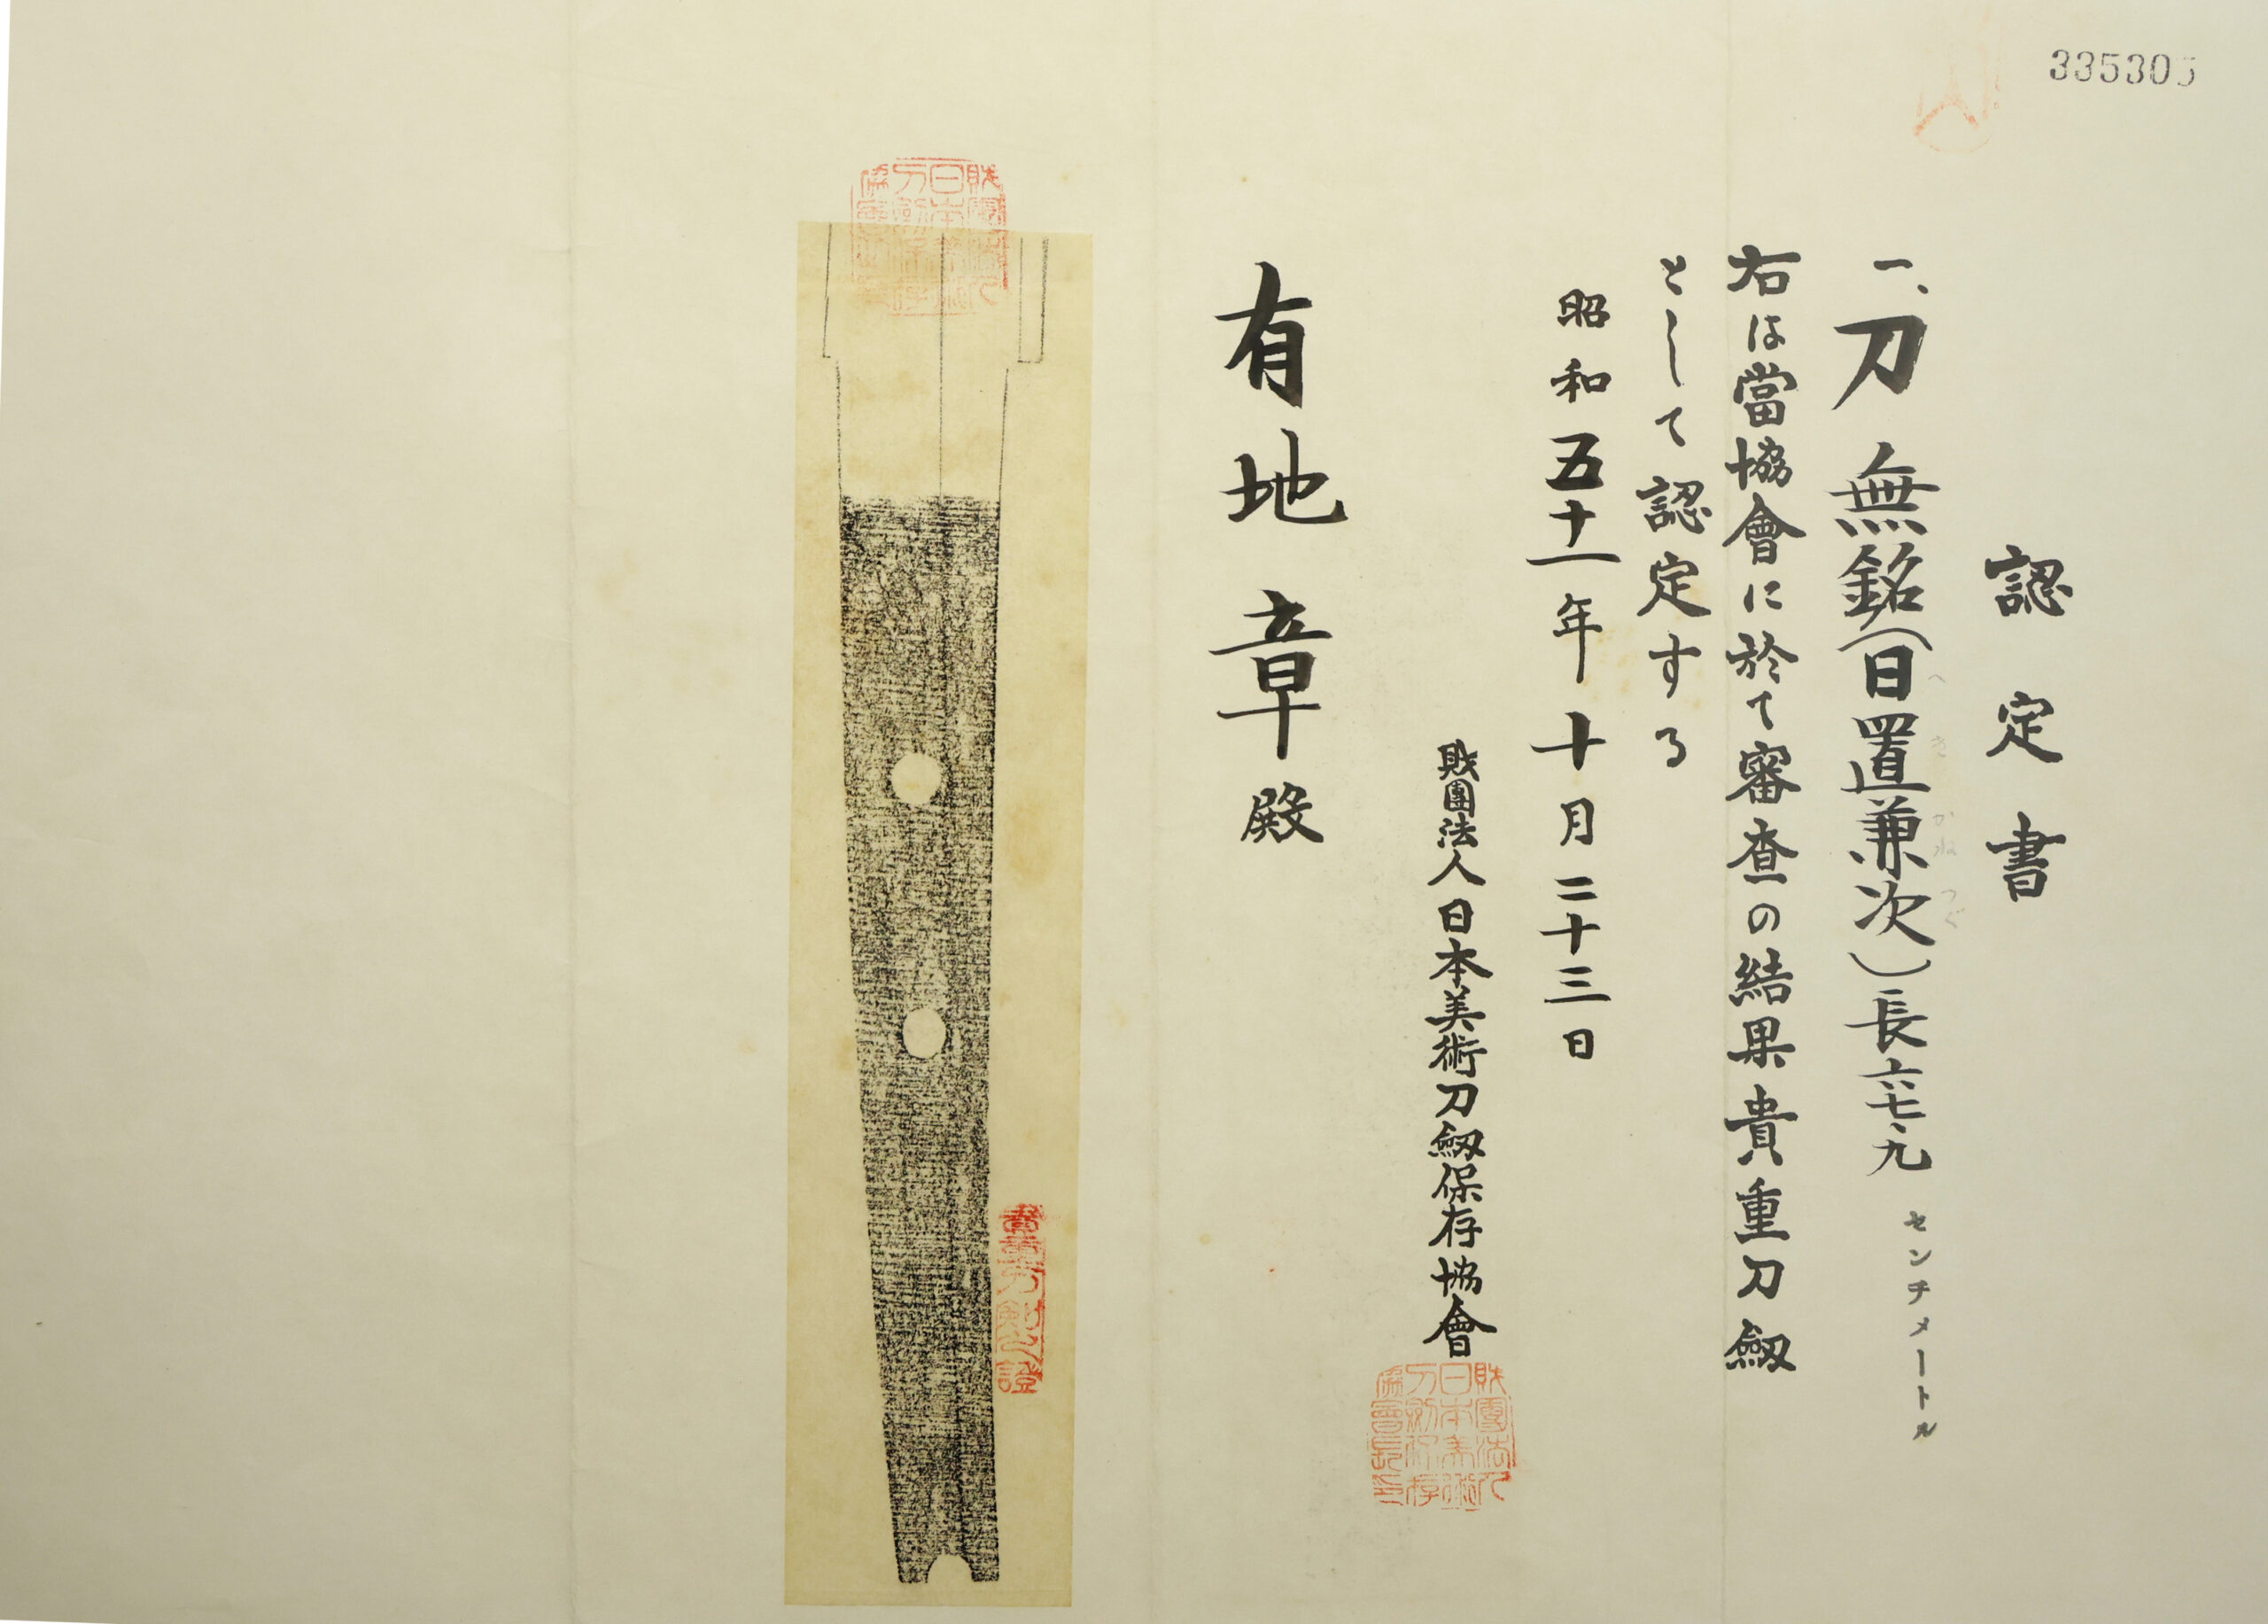 335305
認定書
一、刀 無銘(日置兼次)長六七、九 センチメートル
へき かねつぐ
右は當協會に於て審査の結果貴重刀劔
として認定する
昭和五十一年十月二十三日
財團法人日本美術刀劔保存協會
有地章殿